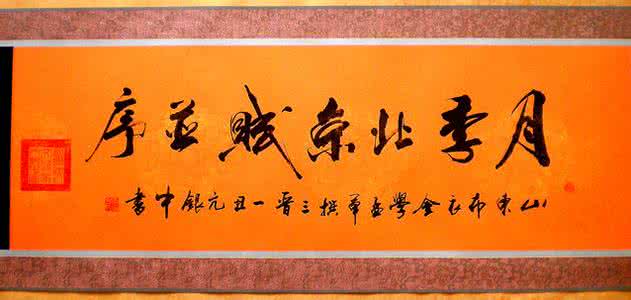 月季北京賦並序
山東布衣金學孟撰三晉一丑元銀中書